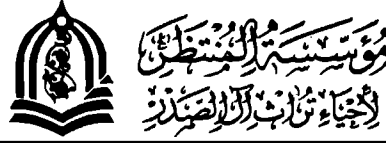 مُؤَسَّسَةُ المُنْتَظَر
لِأَحْيَاءِ تُرَاثِ آلِ الصَّدْرِ